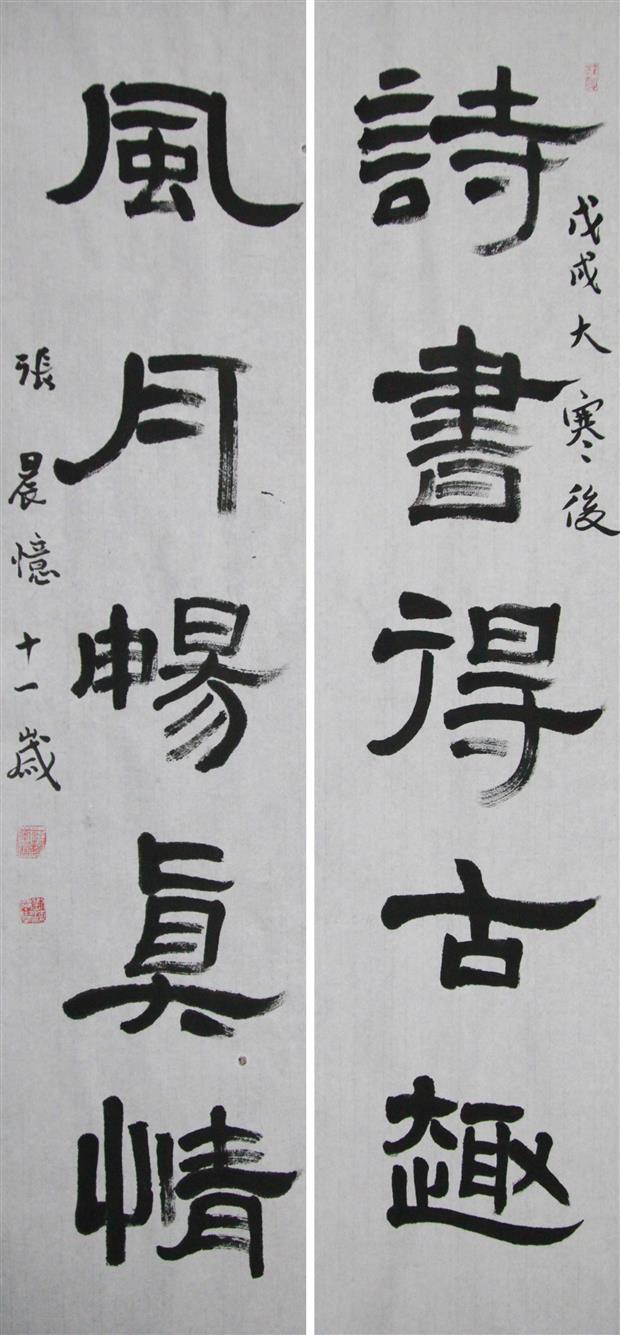 詩書得古趣
戊戌大寒後
風月暢真情
張晨憶十一歲